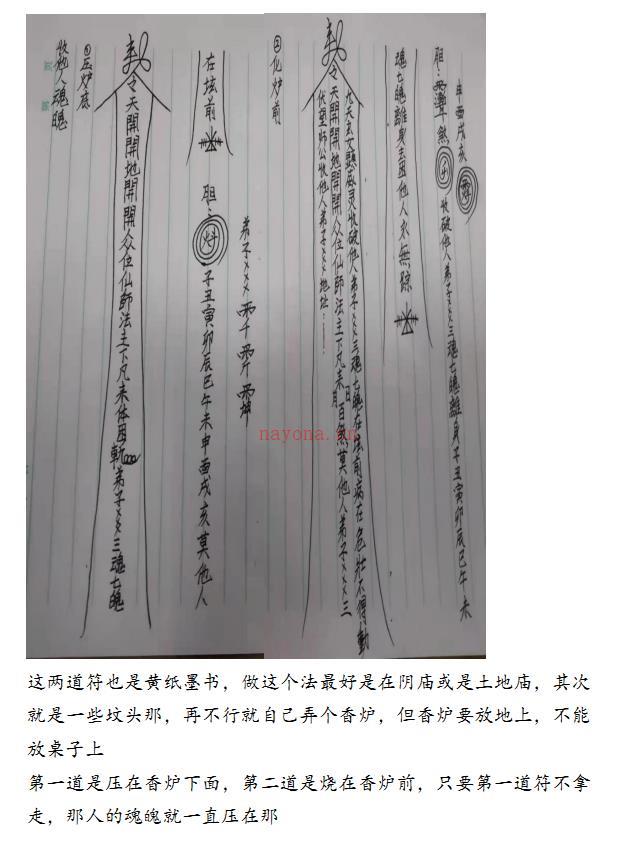 收他人魂魄
①压炉底
令天開開地開開众位仙師法主下凡来体困斬弟子×××三魂七魄
在坛前
胆:
子丑寅卯辰巳午未申酉戌亥莫他人
弟子×××
②化炉前
伏望师公收他人弟子×××地址:……
令天開開地開開众位仙師法主下凡来
日月
百煞莫他人弟子×××三
九天玄女顕威灵收破他人弟子×××三魂七魄在法前病在危壮不得動
魂七魄離身去困他人永無踪
胆:
煞
收破他人弟子×××三魂七魄離身子丑寅卯辰巳午未
申酉戌亥
nayona.cn
这两道符也是黄纸墨书，做这个法最好是在阴庙或是土地庙，其次
就是一些坟头那，再不行就自己弄个香炉，但香炉要放地上，不能
放桌子上
第一道是压在香炉下面，第二道是烧在香炉前，只要第一道符不拿
走，那人的魂魄就一直压在那